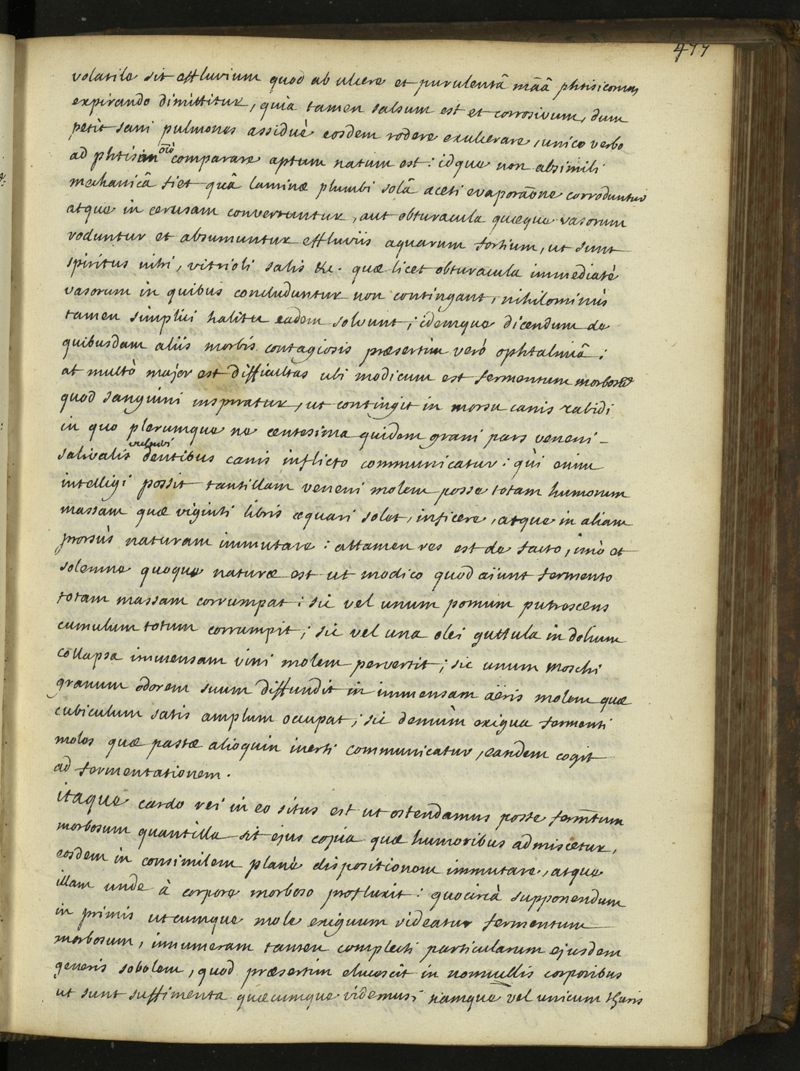 477
volatile sit effluvium quod ab ulcere et purulentâ mãâ phtisicorum
expirando dimittitur, quia tamen salsum est et corrosivum, dum
petit sani pulmones assiduè eosdem rodere exulcerare, unico verbo
ad phtisin comparare aptum natum est : idque non absimili
mechanicâ fiet quâ laminæ plumbi solâ aceti evaporãone corroduntur
atque in cerusam convertuntur, aut obturacula quæque vasorum
roduntur et absumuntur effluviis aquarum fortium, ut sunt
spiritus nitri, vitrioli salis &c. quæ licet obturacula immediatè
vasorum in quibus concluduntur non contingant, nihilominùs
tamen simplici halitu eadem solvunt ; idemque dicendum de
quibusdam aliis morbis contagiosis præsertim verò ophtalmiâ ;
at multò major est difficultas ubi modicum est fermentum morbosũ
quod sanguini inspiratur, ut contingit in morsu canis rabidi
in quo plerumque ne centesima quidem grani pars veneni -
salivalis vulneri dentibus canis inflicto communicatur : quî enim
intelligi possit tantillam veneni molem posse totam humorum
massam quæ viginti libris æquari solet, inficere, atque in aliam
prorsùs naturam immutare : attamen res est de facto, imò et
solemne quoque naturæ est ut modico quod aiunt fermento
totam massam corrumpat : sic vel unum pomum putrescens
cumulum totum corrumpit ; sic vel una olei guttula in dolium
collapsa immensam vini molem pervertit ; sic unum moschi
granum odorem suum diffundit in immensam aëris molem quæ
cubiculum satis amplum occupat ; sic demùm exigua fermenti
moles quæ pastæ alioquin inerti communicatur, eandem cogit
ad fermentationem .
itaque cardo rei in eo situs est ut ostendamus posse fermtum
morbosum quantilla sit ejus copia quæ humoribus admiscetur,
eosdem in consimilem planè dispositionem immutare, atque
illam unde à corpore morboso profluxit : quocircà supponendum
in primis utcumque mole exiguum videatur fermentum
morbosum, innumeram tamen complecti particularum ejusdem
generis sobolem, quod præsertim elucescit in nonnullis corporibus
ut sunt suffimenta quæcumque videmus ; namque vel unicum thuris